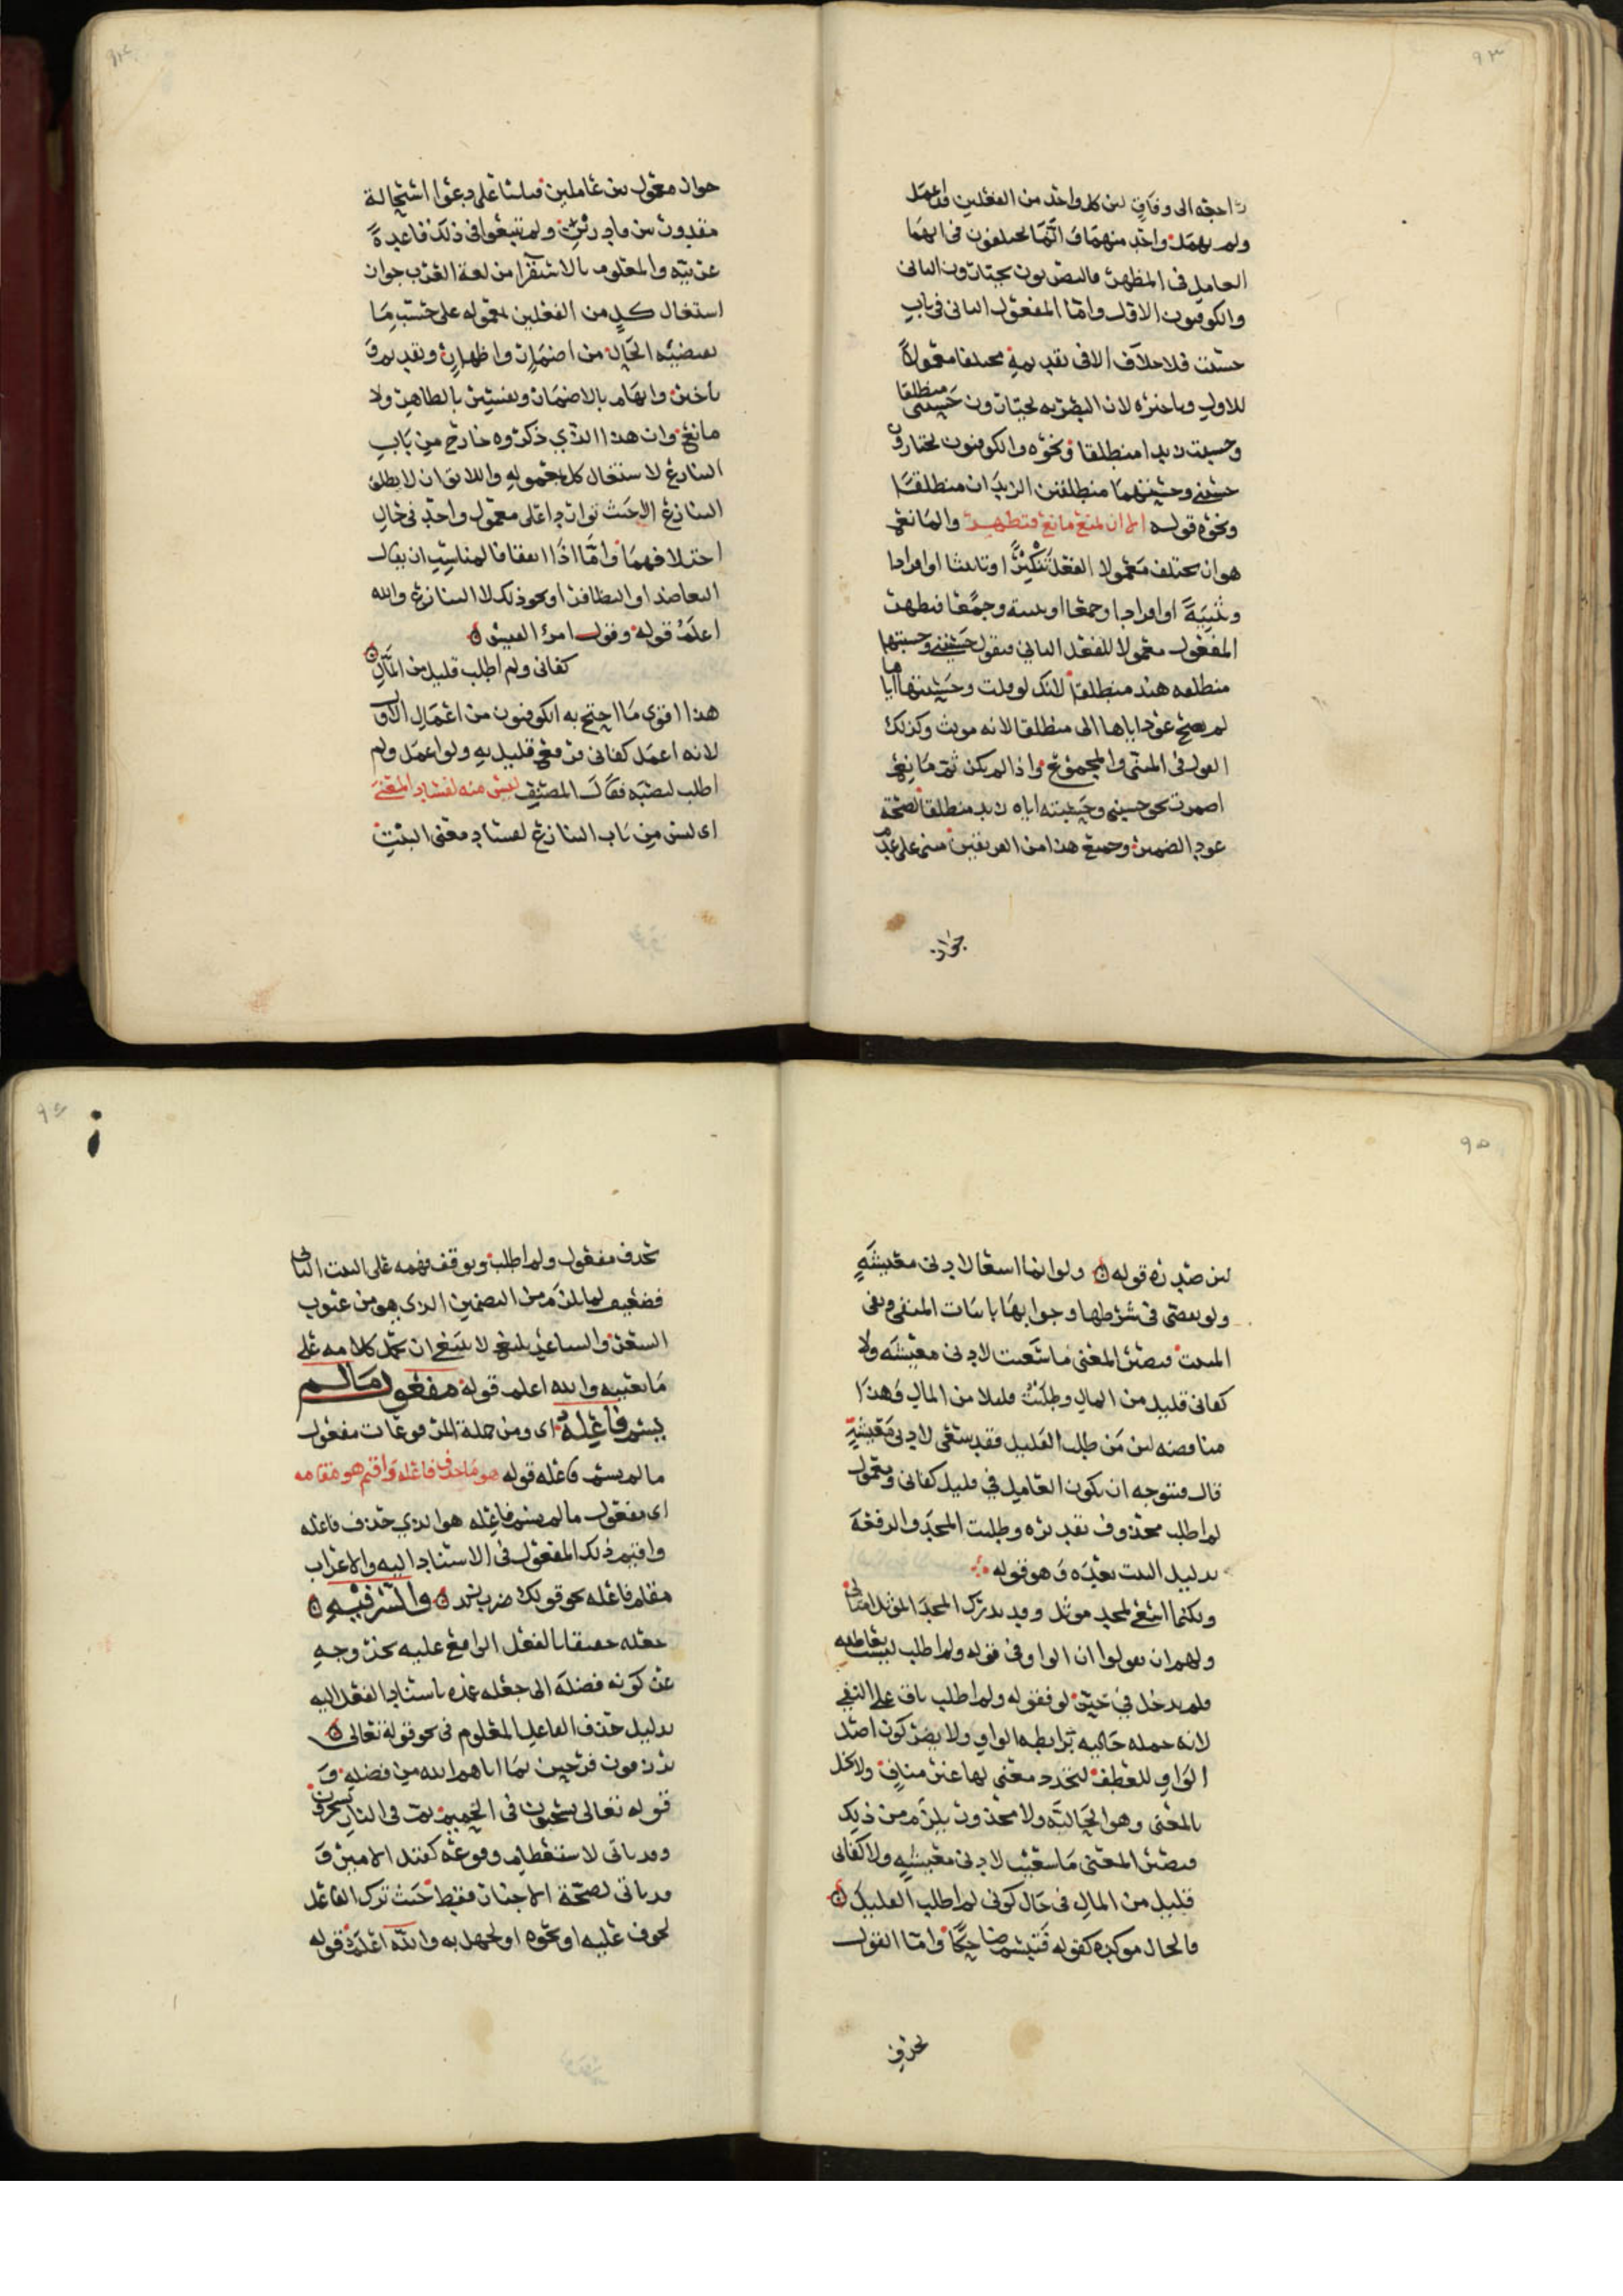 ٩٣
راجعه الى وفاق لان كل واحد من الفعلين قد اعمل
ولم يهمل واحد منهما وانما يختلفون في ايهما
العامل في المظهر فالبصريون يختارون الثاني
والكوفيون الاول واما المفعول الثاني في باب
حسبت فلا خلاف الا في تقديمه مختلفا معمولا
للاول وتاخيره لان البصريه يختارون حسبني منطلقا
وحسبت زيدا منطلقا ونحوه والكوفيون يختارون
حسبني وحسبتهما منطلقين الزيدان منطلقا
ونحوه قوله الا ان لمنع مانع فتظهر والمانع
هو ان يختلف معمولا الفعل تذكيرا وتانيثا او افرادا
وتثنية او افرادا وجمعا او تثنية وجمعا فتظهر
المفعول معمولا للفعل الثاني فتقول حسبني وحسبتها
منطلقه هند منطلقا لانك لو قلت وحسبتها اياها
لم يصح عود اياها الى منطلقا لانه مونث وكذلك
القول في المثنى والمجموع واذا لم يكن ثم مانع
اضمرت نحو حسبني وحسبته اياه زيد منطلقا لصحة
عود الضمير وجميع هذا من الفريقين مبنى على عدم
جواز
٩٤
جواز معمول بين عاملين فبناء على دعوا استحالة
مقدور بين قادرين ولم يتبعوا في ذلك قاعدة
عربيه والمعلوم بالاستقرا من لغة العرب جواز
استعمال كل من الفعلين بمعموله على حسب ما
يقتضيه الحال من اضمار واظهار وتقديم و
تاخير وابهام بالاضمار وتفسير بالظاهر ولا
مانع وان هذا الذي ذكروه خارج من باب
التنازع لاستعمال كل بمعموله واللائق ان لا يطلق
التنازع الا حيث توارد اعلى معمول واحد في حال
اختلافهما واما اذا اتفقا فالمناسب ان يقال
التعاضد او التظافر او نحو ذلك لا التنازع والله
اعلم قوله وقول امرئ القيس
كفاني ولم اطلب قليل من المال
هذا اقوى ما احتج به الكوفيون من اعمال الاول
لانه اعمل كفاني فرفع قليل به ولو اعمل ولم
اطلب لنصبه فقال المصنف ليس منه لفساد المعنى
اي ليس من باب التنازع لفساد معنى البيت
٩٥
لان صدره قوله ولو انما اسعا لادنى معيشة
ولو تقضى في شرطها وجوابها باثبات المنفي ونفي
المثبت فيصير المعنى ما سعيت لادنى معيشه ولا
كفاني قليل من المال وطلبت قليلا من المال وهذا
مناقضه لان من طلب القليل فقد سعى لادنى معيشة
قال فيتوجه ان يكون العامل في قليل كفاني ومعمول
لم اطلب محذوف تقديره وطلبت المجد والرفعة
بدليل البيت بعده وهو قوله
ولكنما اسعى لمجد موثل وقد يدرك المجد الموثل امثالي
ولهم ان يقولوا ان الواو في قوله ولم اطلب ليست بعاطفه
فلم يدخل في حيز لو فقوله ولم اطلب باق على النفي
لانه جمله حاليه ترابطه الواو ولا يضر كون اصل
الواو للعطف لتجدد معنى لها غير مناف ولا مخل
بالمعنى وهو الحالية ولا محذور يلزم من ذلك
فيصير المعنى ما سعيت لادنى معيشة ولا كفاني
قليل من المال في حال كوني لم اطلب القليل
فالحال موكده كقوله فتبسم ضاحكا واما القول
بحذف
٩٦
بحذف مفعول ولم اطلب وتوقف فهمه على البيت الثاني
فضعيف لما يلزم من التضمين الذي هو من عيوب
الشعر والساعر بليغ لا ينبغي ان يحمل كلامه على
ما يعيبه والله اعلم قوله مفعول ما لم
يسم فاعله اى ومن جملة المرفوعات مفعول
ما لم يسم فاعله قوله هو ما حذف فاعله واقيم هو مقامه
اى مفعول ما لم يسم فاعله هو الذي حذف فاعله
واقيم ذلك المفعول في الاسناد اليه والاعراب
مقام فاعله نحو قولك ضرب زيد والسر فيه
جعله حقيقا بالفعل الواقع عليه بخروجه
عن كونه فضلة الى جعله عمده باسناد الفعل اليه
بدليل حذف الفاعل المعلوم في نحو قوله تعالى
يرزقون فرحين بما اتاهم الله من فضله و
قوله تعالى يسحبون في الحميم ثم في النار يسجرون
وقد ياتي لاستعظام وقوعه كقتل الامير و
قد ياتي لصحة الاخبار فقط حيث ترك الفاعل
لخوف عليه او نحوه او لجهل به والله اعلم قوله